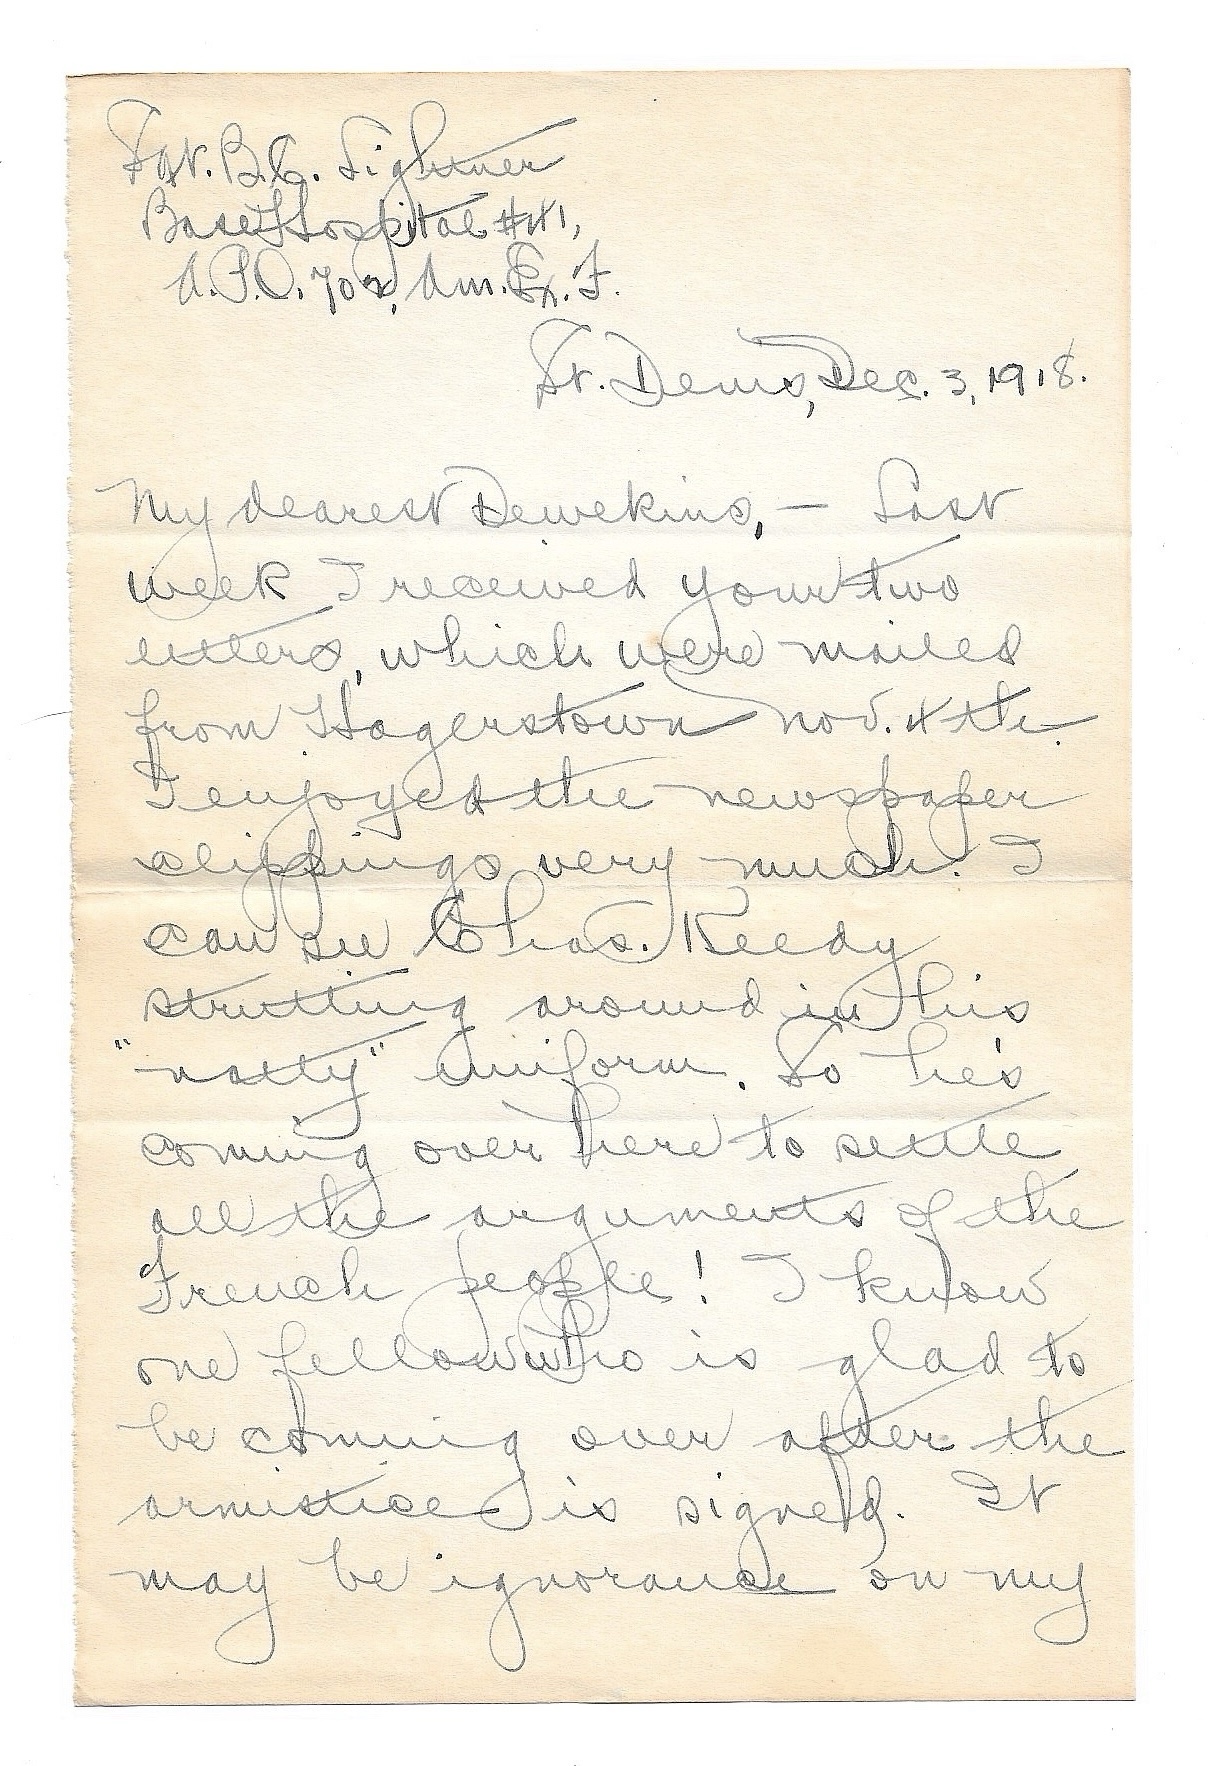 Sgt. B.C. Lightner
Base Hospital #41,
A.P.O. 702, Am. Ex. F.
St. Denis, Dec. 3, 1918.
My dearest Dewekins, — Last
week I received your two
letters, which were mailed
from Hagerstown Nov. 4th.
I enjoyed the newspaper
clippings very much. I
can see Chas. Reedy
strutting around in his
"natty" uniform. So he's
coming over here to settle
all the arguments of the
French people! I know
one fellow who is glad to
be coming over after the
armistice is signed. It
may be ignorance on my